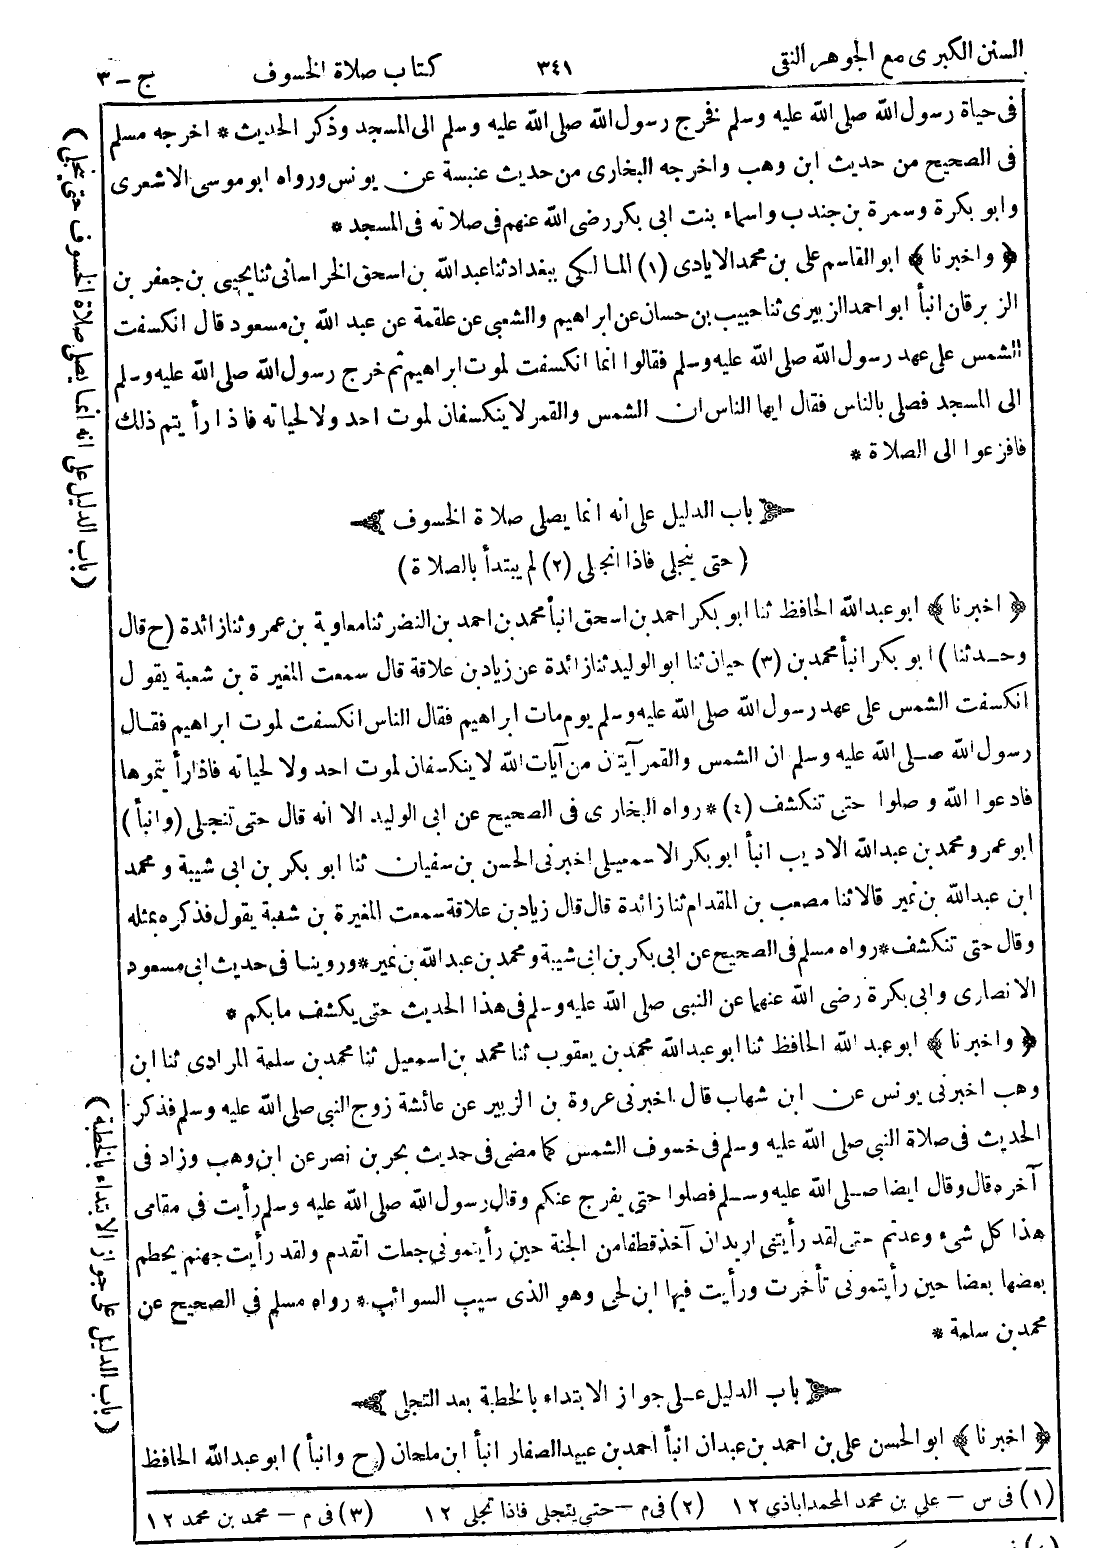 السنن الكبرى مع الجوهر النقى ٣٤١ كتاب صلاة الخسوف ج - ٣
فى حياة رسول الله صلى الله عليه وسلم فخرج رسول الله صلى الله عليه وسلم الى المسجد وذكر الحديث * اخرجه مسلم
فى الصحيح من حديث ابن وهب واخرجه البخارى من حديث عنبسة عن يونس ورواه ابو موسى الاشعرى
وابو بكرة وسمرة بن جندب واسماء بنت ابى بكر رضى الله عنهم فى صلاته فى المسجد *
﴿ واخبرنا ﴾ ابو القاسم على بن محمد الايادى (١) المالكى ببغداد ثنا عبد الله بن اسحق الخراسانى ثنا يحيى بن جعفر بن
الزبرقان انبأ ابو احمد الزبيرى ثنا حبيب بن حسان عن ابراهيم والشعبى عن علقمة عن عبد الله بن مسعود قال انكسفت
الشمس على عهد رسول الله صلى الله عليه وسلم فقالوا انما انكسفت لموت ابراهيم ثم خرج رسول الله صلى الله عليه وسلم
الى المسجد فصلى بالناس فقال ايها الناس ان الشمس والقمر لا ينكسفان لموت احد ولا لحياته فاذا رأيتم ذلك
فافزعوا الى الصلاة *
باب الدليل على انه انما يصلى صلاة الخسوف
( حتى ينجلى فاذا انجلى (٢) لم يبتدأ بالصلاة )
﴿ اخبرنا ﴾ ابو عبد الله الحافظ ثنا ابو بكر احمد بن اسحق انبأ محمد بن احمد بن النضر ثنا معاوية بن عمرو ثنا زائدة (ح قال
وحدثنا ) ابو بكر انبأ محمد بن (٣) حيان ثنا ابو الوليد ثنا زائدة عن زياد بن علاقة قال سمعت المغيرة بن شعبة يقول
انكسفت الشمس على عهد رسول الله صلى الله عليه وسلم يوم مات ابراهيم فقال الناس انكسفت لموت ابراهيم فقال
رسول الله صلى الله عليه وسلم ان الشمس والقمر آيتان من آيات الله لا ينكسفان لموت احد ولا لحياته فاذا رأيتموها
فادعوا الله وصلوا حتى تنكشف (٤) * رواه البخارى فى الصحيح عن ابى الوليد الا انه قال حتى تنجلى (وانبأ )
ابو عمرو محمد بن عبد الله الاديب انبأ ابو بكر الاسمعيلى اخبرنى الحسن بن سفيان ثنا ابو بكر بن ابى شيبة ومحمد
ابن عبد الله بن نمير قالا ثنا مصعب بن المقدام ثنا زائدة قال قال زياد بن علاقة سمعت المغيرة بن شعبة يقول فذكره بمثله
وقال حتى تنكشف * رواه مسلم فى الصحيح عن ابى بكر بن ابى شيبة ومحمد بن عبد الله بن نمير * وروينا فى حديث ابى مسعود
الانصارى وابى بكرة رضى الله عنهما عن النبى صلى الله عليه وسلم فى هذا الحديث حتى يكشف ما بكم *
﴿ واخبرنا ﴾ ابو عبد الله الحافظ ثنا ابو عبد الله محمد بن يعقوب ثنا محمد بن اسمعيل ثنا محمد بن سلمة المرادى ثنا ابن
وهب اخبرنى يونس عن ابن شهاب قال اخبرنى عروة بن الزبير عن عائشة زوج النبى صلى الله عليه وسلم فذكر
الحديث فى صلاة النبى صلى الله عليه وسلم فى خسوف الشمس كما مضى فى حديث بحر بن نصر عن ابن وهب وزاد فى
آخره قال وقال ايضا صلى الله عليه وسلم فصلوا حتى يفرج عنكم وقال رسول الله صلى الله عليه وسلم رأيت فى مقامى
هذا كل شىء وعدتم حتى لقد رأيتنى اريد ان آخذ قطفا من الجنة حين رأيتمونى جعلت اتقدم ولقد رأيت جهنم يحطم
بعضها بعضا حين رأيتمونى تأخرت ورأيت فيها ابن لحى وهو الذى سيب السوائب * رواه مسلم فى الصحيح عن
محمد بن سلمة *
باب الدليل على جواز الابتداء بالخطبة بعد التجلى
﴿ اخبرنا ﴾ ابو الحسن على بن احمد بن عبدان انبأ احمد بن عبيد الصفار انبأ ابن ملحان (ح وانبأ ) ابو عبد الله الحافظ
(١) فى س - على بن محمد المحمداباذى ١٢ (٢) فى م - حتى يتجلى فاذا تجلى ١٢ (٣) فى م - محمد بن محمد ١٢
(باب الدليل على انه انما يصلى صلاة الخسوف حتى ينجلى)
(باب الدليل على جواز الابتداء بالخطبة)